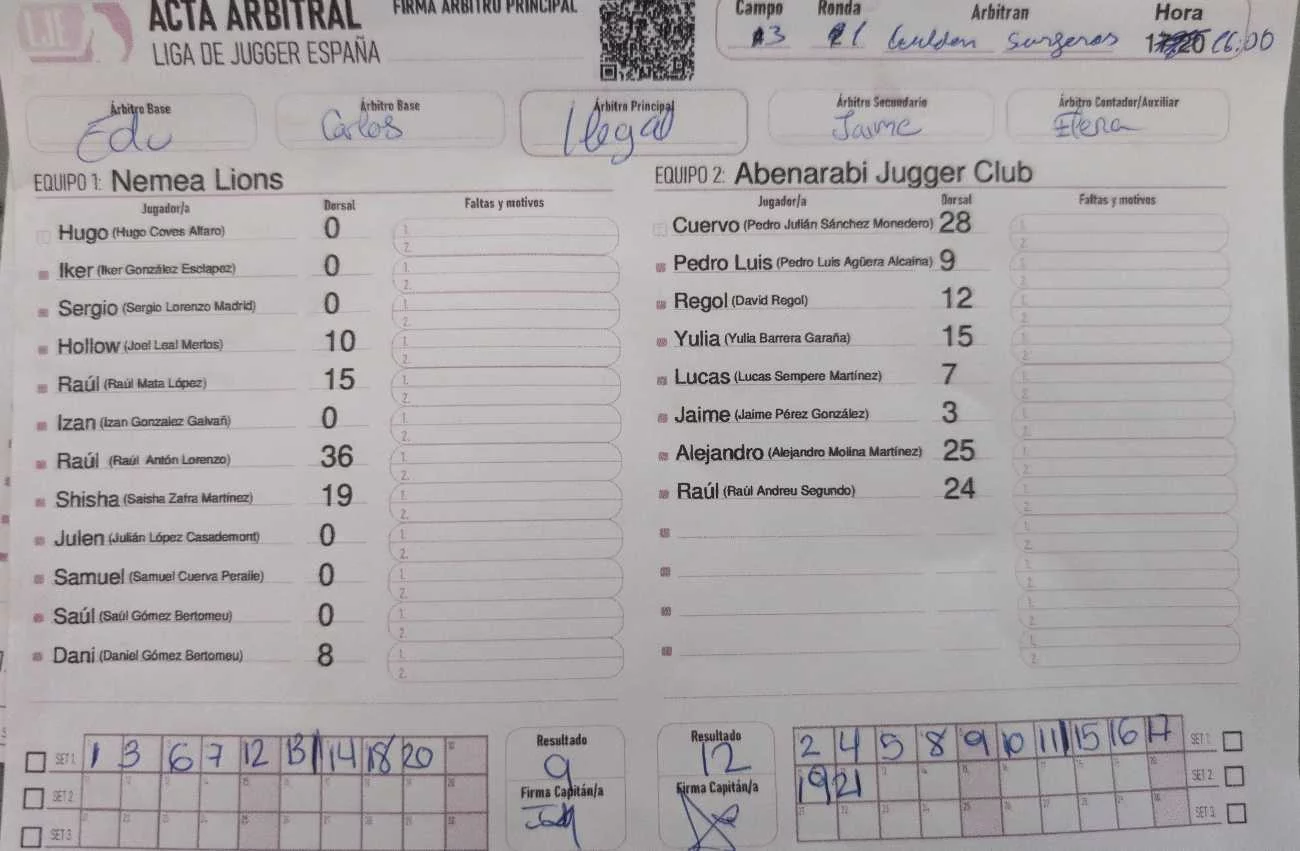 LJE
ACTA ARBITRAL
LIGA DE JUGGER ESPAÑA
FIRMA ÁRBITRO PRINCIPAL
Campo Ronda Arbitran Hora
3 1 Gulden Surgeras 16:00
Árbitro Base Árbitro Base Árbitro Principal Árbitro Secundario Árbitro Contador/Auxiliar
Edu Carlos Ilegal Jaime Elena
EQUIPO 1: Nemea Lions
Jugador/a Dorsal Faltas y motivos
Hugo (Hugo Coves Alfaro) 0 1. 2.
Iker (Iker González Esclapez) 0 1. 2.
Sergio (Sergio Lorenzo Madrid) 0 1. 2.
Hollow (Joel Leal Merlos) 10 1. 2.
Raúl (Raúl Mata López) 15 1. 2.
Izan (Izan Gonzalez Galvañ) 0 1. 2.
Raúl (Raúl Antón Lorenzo) 36 1. 2.
Shisha (Saisha Zafra Martínez) 19 1. 2.
Julen (Julián López Casademont) 0 1. 2.
Samuel (Samuel Cuerva Peraile) 0 1. 2.
Saúl (Saúl Gómez Bertomeu) 0 1. 2.
Dani (Daniel Gómez Bertomeu) 8 1. 2.
EQUIPO 2: Abenarabi Jugger Club
Jugador/a Dorsal Faltas y motivos
Cuervo (Pedro Julián Sánchez Monedero) 28 1. 2.
Pedro Luis (Pedro Luis Agüera Alcaina) 9 1. 2.
Regol (David Regol) 12 1. 2.
Yulia (Yulia Barrera Garaña) 15 1. 2.
Lucas (Lucas Sempere Martínez) 7 1. 2.
Jaime (Jaime Pérez González) 3 1. 2.
Alejandro (Alejandro Molina Martínez) 25 1. 2.
Raúl (Raúl Andreu Segundo) 24 1. 2.
1. 2.
1. 2.
1. 2.
1. 2.
SET 1 1 3 6 7 12 13 14 18 20
SET 2
SET 3
Resultado
9
Firma Capitán/a
Resultado
12
Firma Capitán/a
2 4 5 8 9 10 11 15 16 17 SET 1
19 21 SET 2
SET 3